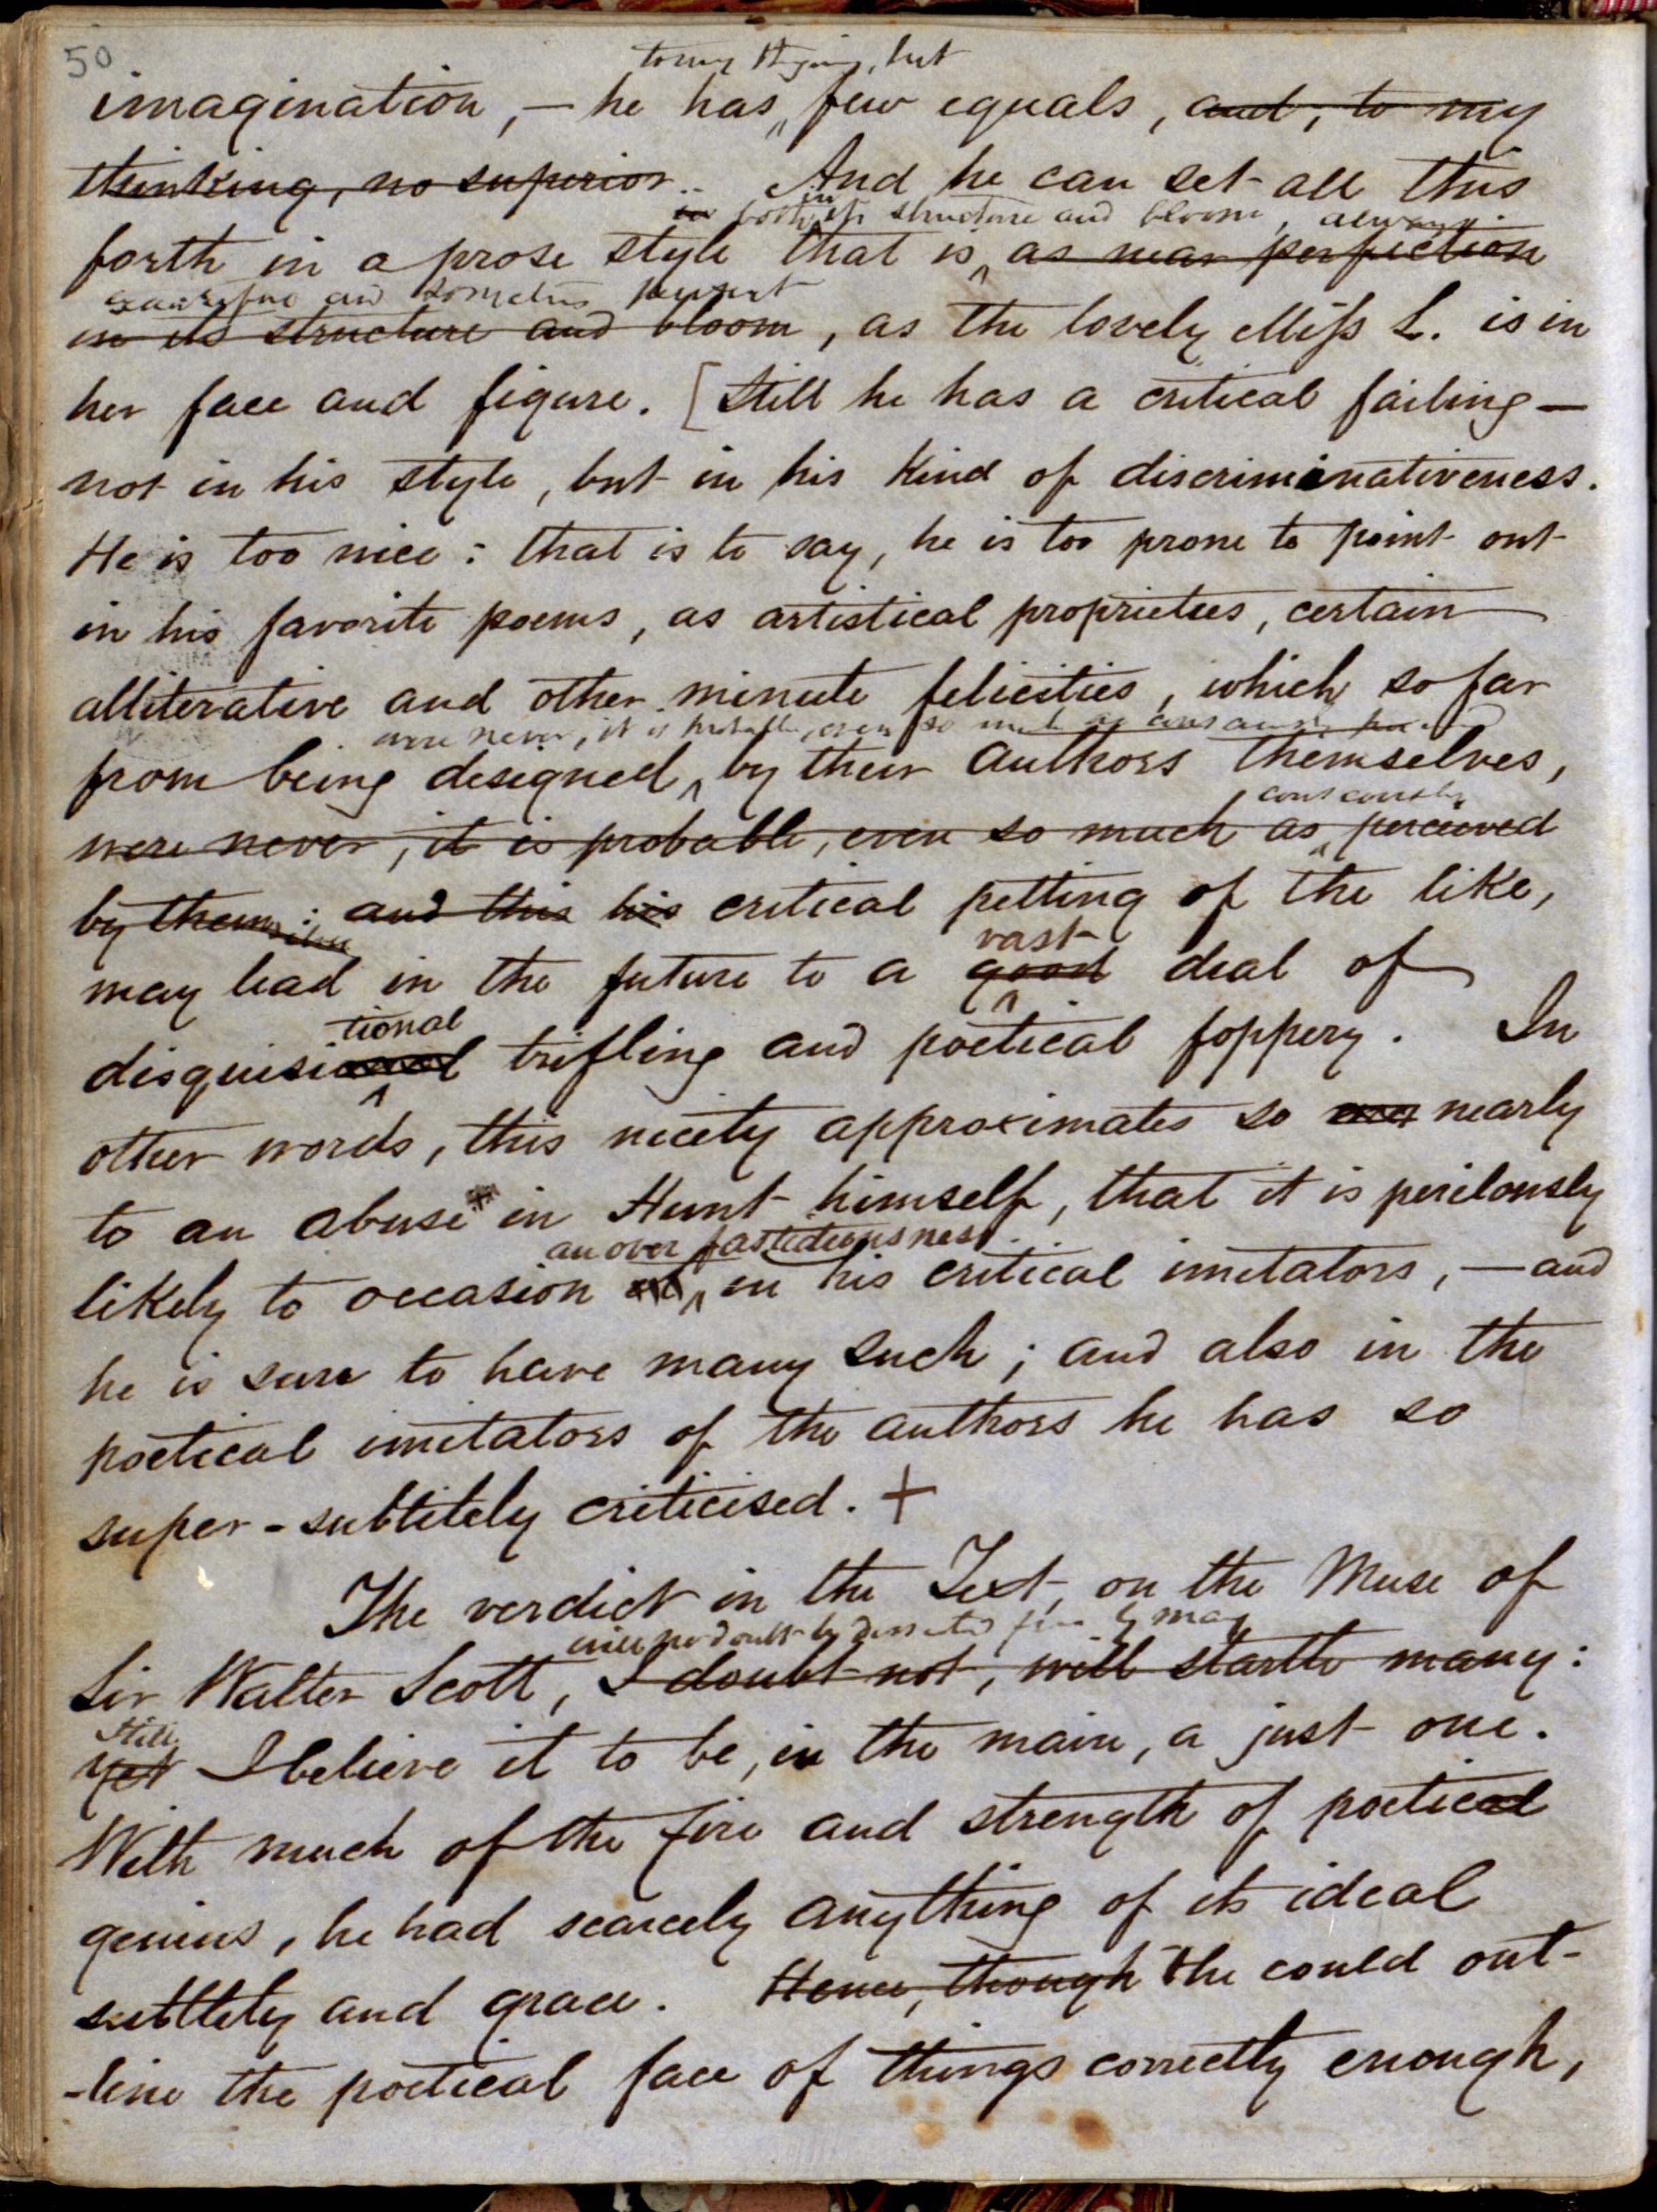 50
to my thinking, but
imagination, — he has, few equals, and, to my
thinking, no superior. And he can set all this
in both its structure and bloom, always
forth in a prose style that is as near perfection
and sometimes
in its structure and bloom, as the lovely Miss L. is in
her face and figure. [Still he has a critical failing—
not in his style, but in his kind of discriminativeness.
He is too nice: that is to say, he is too prone to point out
in his favorite poems, as artistical proprieties, certain
alliterative and other minute felicities, which so far
were never, it is probable, even so much as
from being designed, by their authors themselves,
consciously
were never, it is probable, even so much as perceived
by them: and this his critical petting of the like,
vast
may lead in the future to a good deal of
tional
disquisi trifling and poetical foppery. In
other words, this nicety approximates so nearly
to an abuse in Hunt himself, that it is perilously
an over fastidiousness
likely to occasion in his critical imitators, — and
he is sure to have many such; and also in the
poetical imitators of the authors he has so
super-subtitely criticised. +
The verdict in the Text, on the Muse of
will no doubt be dissented from by many
Sir Walter Scott, I doubt not, will startle many:
Still
yet I believe it to be, in the main, a just one.
With much of the fire and strength of poetical
genius, he had scarcely anything of its ideal
subtlety and grace. Hence, though he could out-
-line the poetical face of things correctly enough,